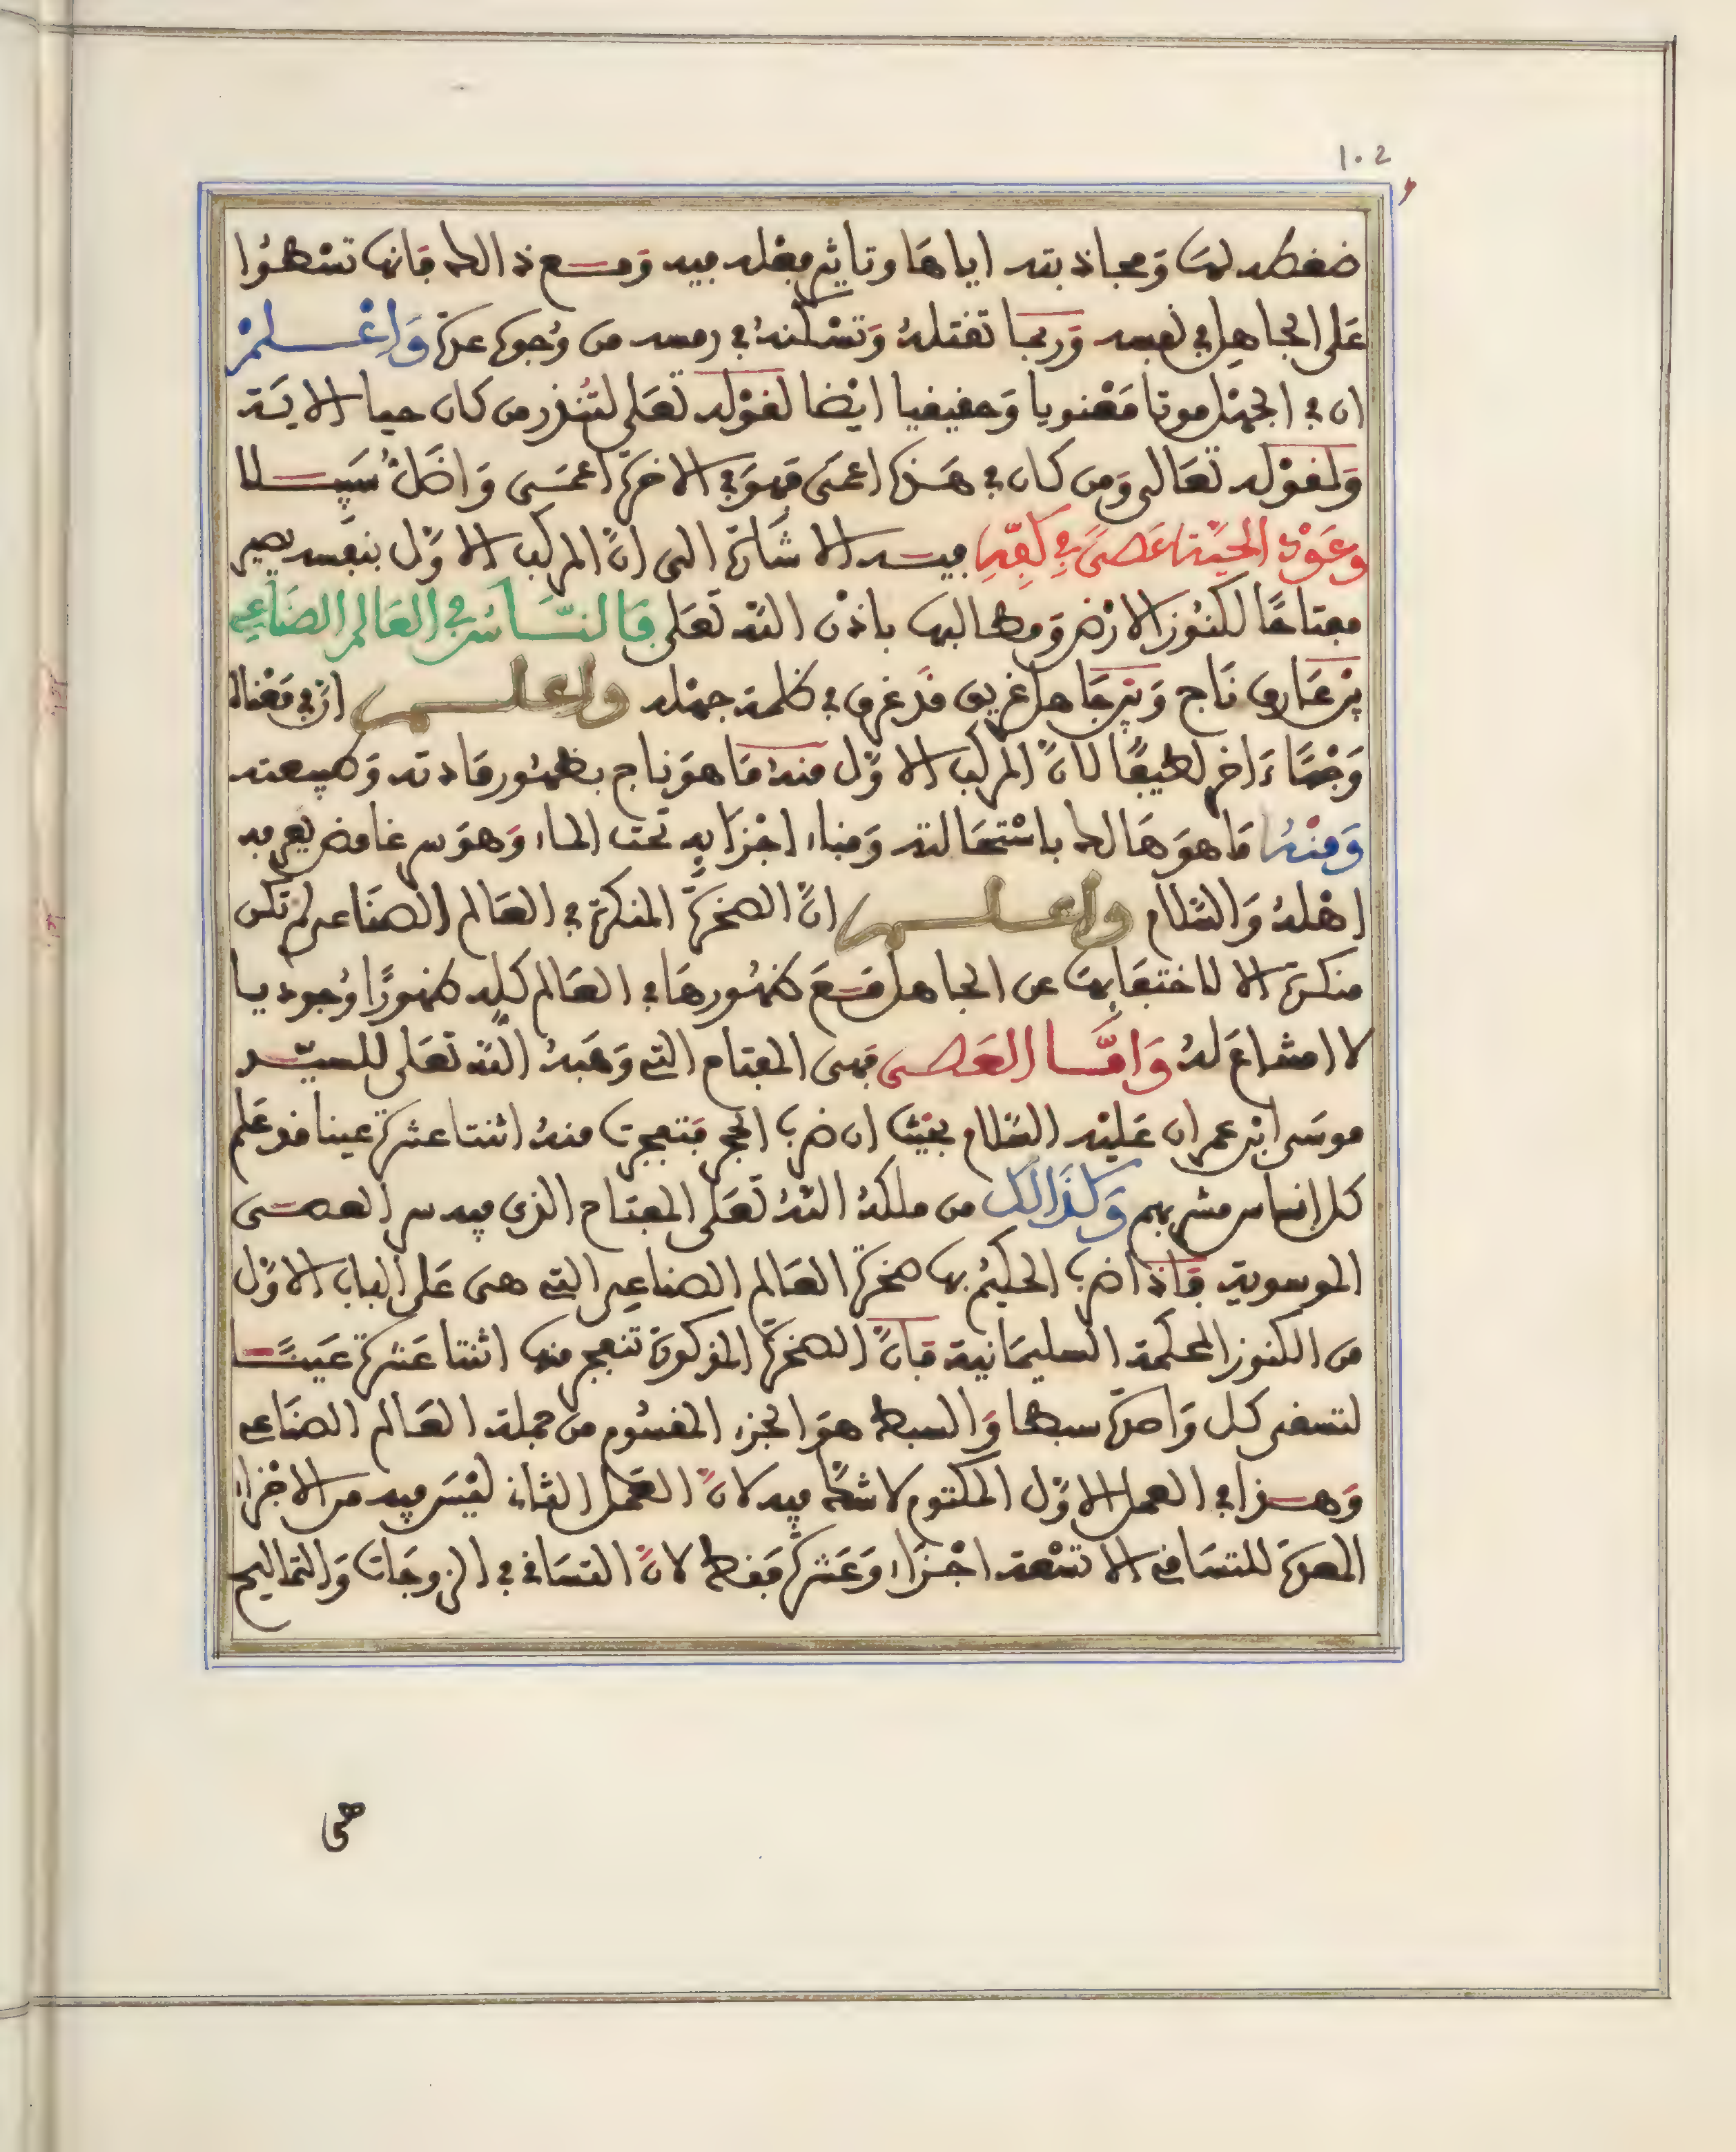 102
ضغطه لها وَمجاذبته اياهَا وتاثير فعْله فيه وَمع ذالك فَانها تسْطوُا
عَلى الجاهِل في نفسه وَربما تقتلهُ وَتسْكنهُ في رمسه من وُجوه عدة وَاعْلمْ
ان في الجهْل موتا مَعْنويا وَحقيقيا ايْضا لقوْله تعَلى لتُنذر من كان حيا الايَة
وَلقوْله تعَالى وَمن كان في هَذه اعمَى فهوَ في الاخرة اعمَى وَاضَلّ سَبيلا
وعَوْد الحيَّة عَصىً في كفِّه فيه الاشَارة الى انَّ المركب الاوَّل بنفسه يصير
مفتاحًا لكنُوز الارْض وَمطالبها باذْن اللَّه تعَلى فَالنَّاسُ في العَالم الصنَاعي
بيْن عَارف نَاج وَبيْن جَاهل غريق قدْ غرق في ظلمة جهْله واعلم انّ في مَعْناهُ
وَجْهًا ءَاخر لطيفًا لانَّ المركب الاوَّل منهُ مَا هوَ ناج بظهُور مَادته وَطبيعته
وَمنْهُ مَا هوَ هَالك باسْتحَالته وَفناء اجْزَايِه تحت الماء وَهوَ سر غامض يعرفه
اهْلهُ وَالسَّلام واعلم انَّ الصخرَة المنكرة في العَالم الصنَاعي لم تكن
منكرة الا لاختفَايها عن الجاهل مَعَ ظهُورهَا في العَالم كلِه ظهورًا وُجوديا
لا امتناعَ لهُ وَامَّا العَصى فهى المفتاح التي وَهَبهُ اللَّه تعَلى للسيّد
موسَى ابْن عمران عَليْه السَّلام بحَيْث ان ضرب الحجر فتفجرت منهُ اثنتا عشرة عينا قد علم
كل اناس مشربهم وَكذَالكَ من ملكهُ اللَّهُ تعَلى المفتاح الذى فيه سر العصى
الموسوية فَاذَا ضرب الحكيمُ بها صخرة العَالم الصناعِي التي هى عَلى الباب الاوَّل
من الكنوز المحكمة السليمَانية فَانَّ الصخرة المذكورَة تنفجر منها اثنتا عَشرة عَينًا
لتسقى كل وَاحدة سبطا وَالسبط هوَ الجزء المقسُوم من جملة العَالم الصنَاعي
وَهذا في العمل الاوَّل المكتوم لا شكَّ فيه لانَّ العَمل الثَاني ليْسَ فيه من الاجْزاء
المعدة للتسَاقي الا تسْعة اجْزَاء وَعَشرة فقط لانَّ التسَاقي في الزوجَات وَالتماليح
هى